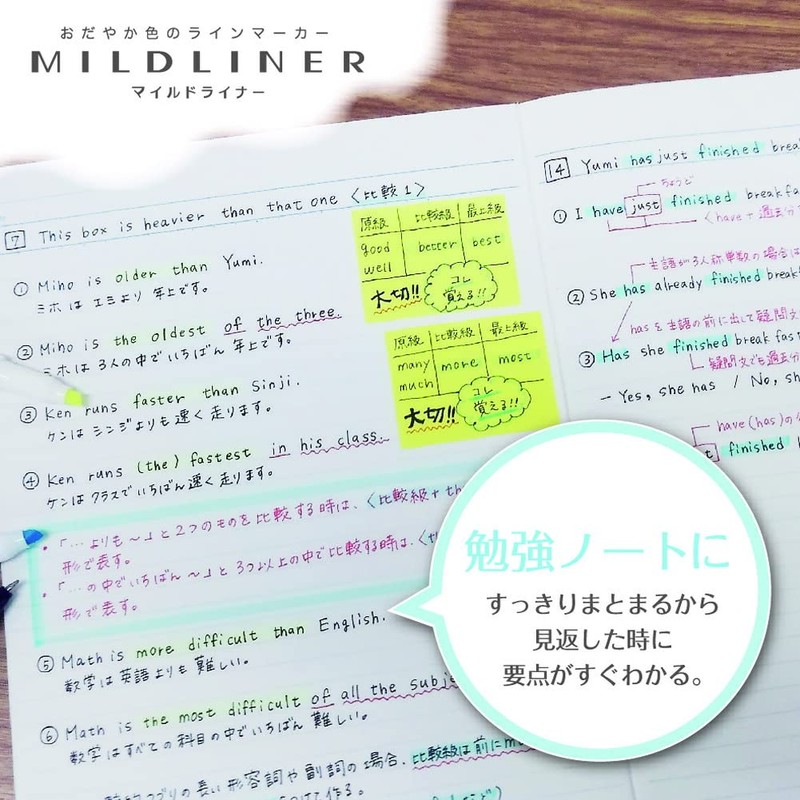 おだやか色のラインマーカー
MILDLINER
マイルドライナー
7 This box is heavier than that one 〈比較1〉
① Miho is older than Yumi.
ミホはエミより年上です。
② Miho is the oldest of the three.
ミホは3人の中でいちばん年上です。
③ Ken runs faster than Sinji.
ケンはシンジよりも速く走ります。
④ Ken runs (the) fastest in his class.
ケンはクラスでいちばん速く走ります。
・「…よりも〜」と2つのものを比較する時は、〈比較級+th
形で表す。
・「…の中でいちばん〜」と3つ以上の中で比較する時は、〈th
形で表す。
⑤ Math is more difficult than English.
数学は英語よりも難しい。
⑥ Math is the most difficult of all the subje
数学はすべての科目の中でいちばん難しい。
の長い形容詞や副詞の場合、比較級は前にm
けて作る。
原級 比較級 最上級
good better best
well
大切!! コレ
覚える!!
原級 比較級 最上級
many more most
much
大切!! コレ
覚える!!
14 Yumi has just finished brea
ちょうど
① I have just finished breakfa
〈have+過去分
主語が3人称単数の場合は
② She has already finished break
hasを主語の前に出して疑問文
③ Has she finished breakfast
疑問文でも過去分
- Yes, she has / No, sh
have(has)の
finished b
勉強ノートに
すっきりまとまるから
見返した時に
要点がすぐわかる。